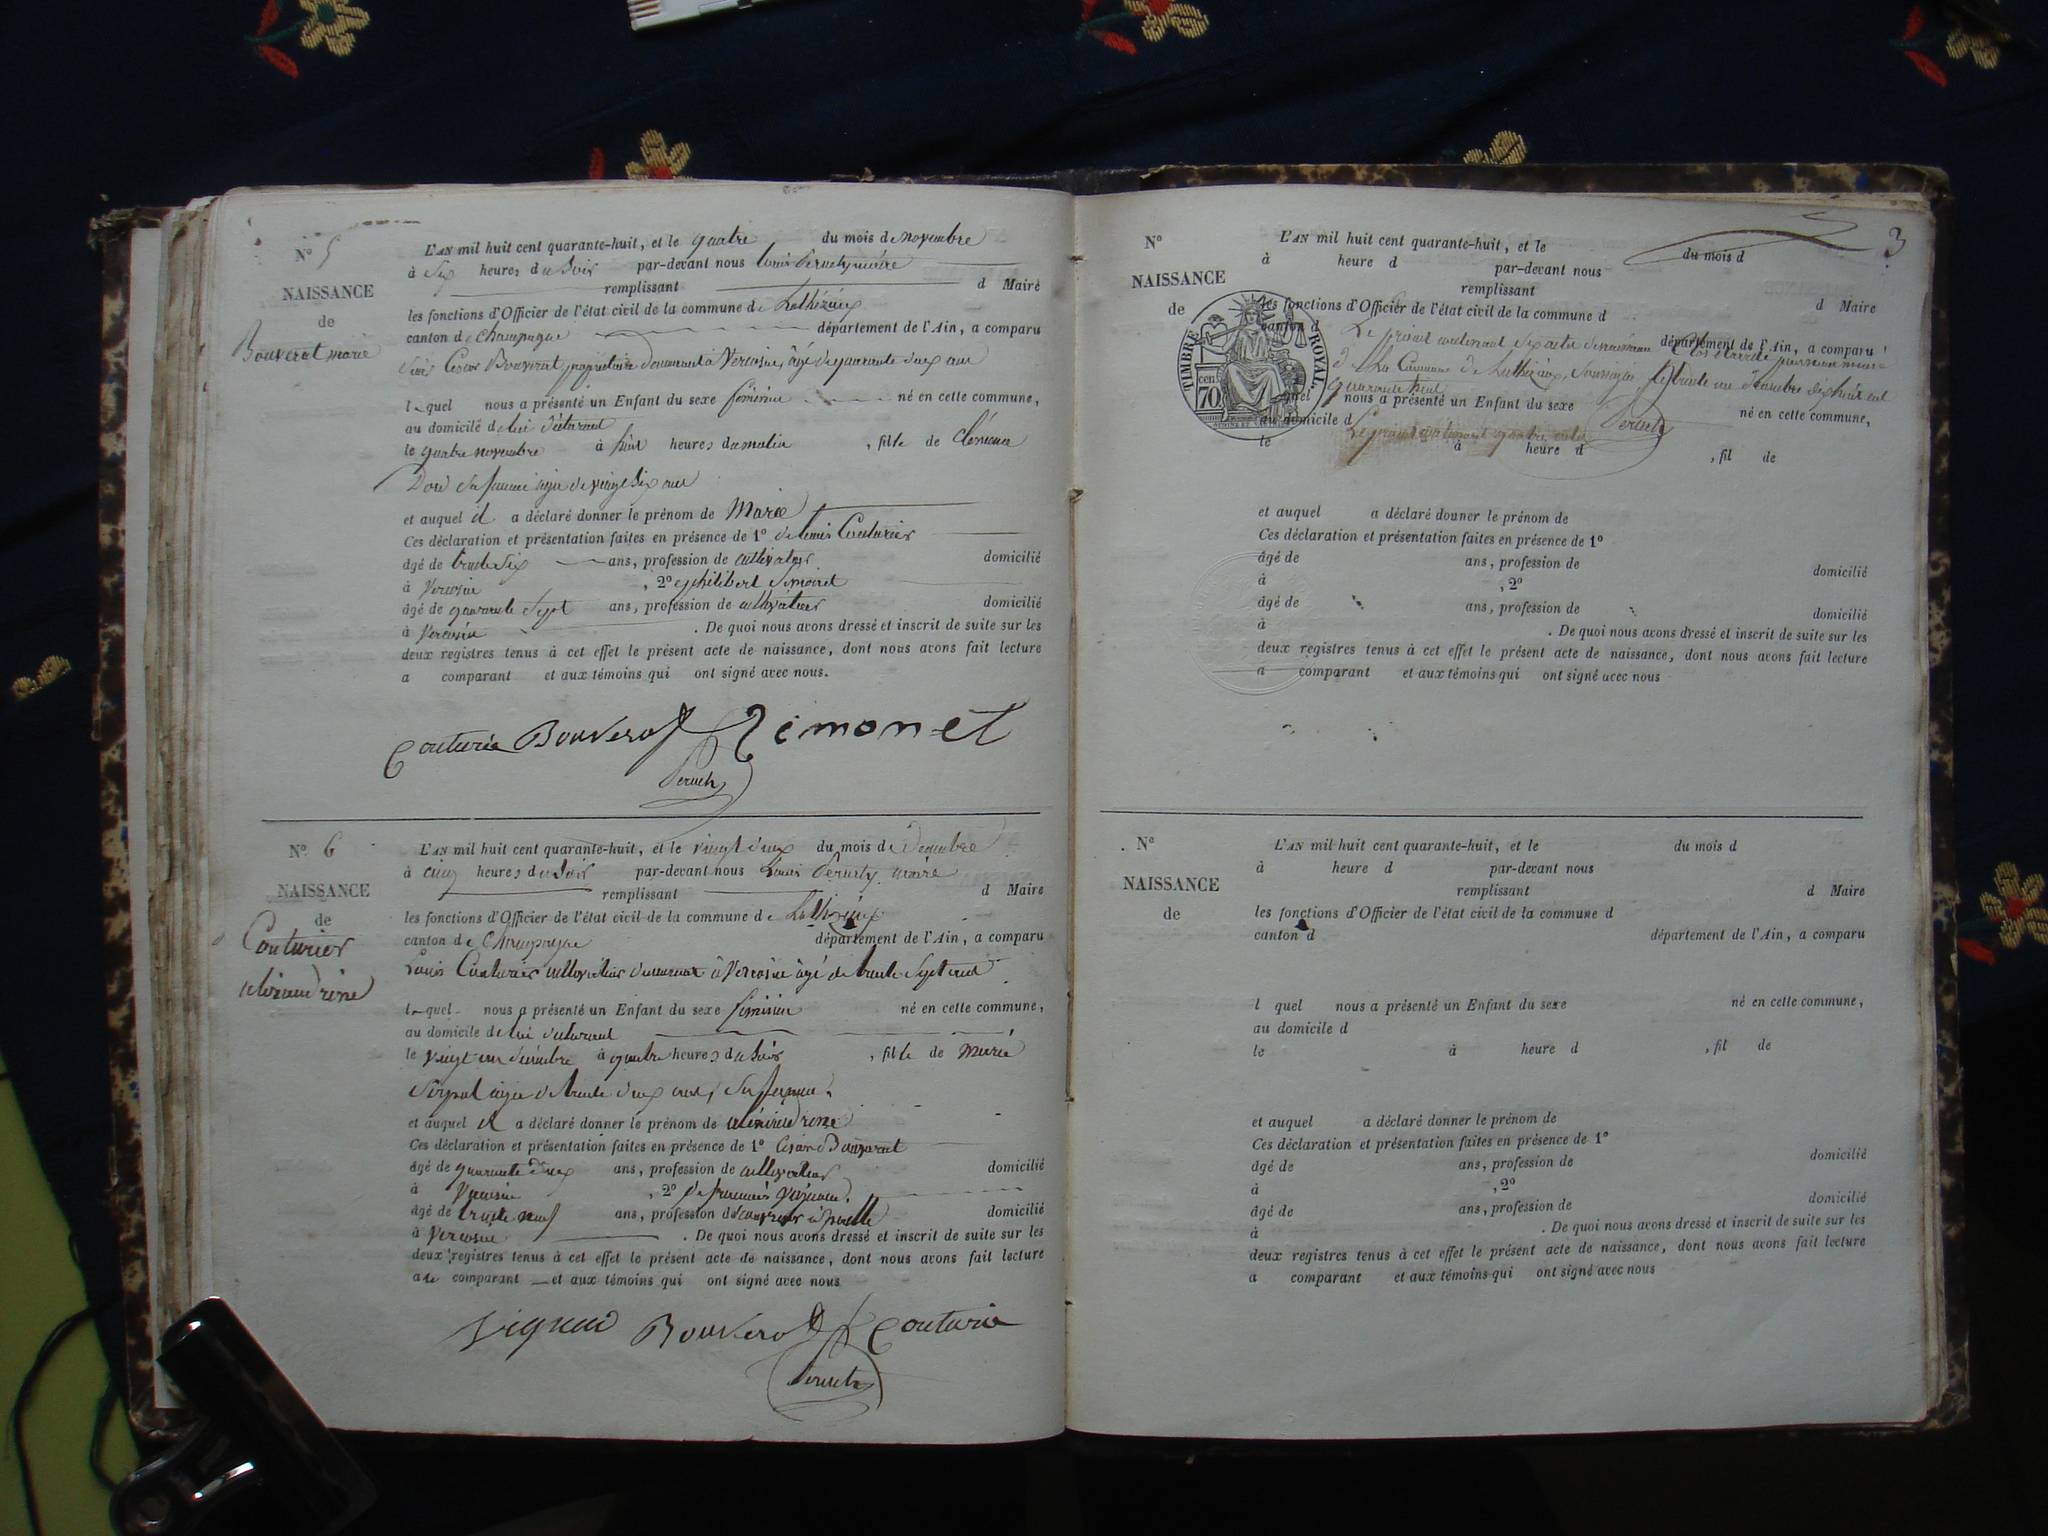 N° 5
NAISSANCE
de
Bouverot marie
L'AN mil huit cent quarante-huit, et le quatre du mois de novembre
à Six heures du Soir par-devant nous Louis Peruch maire
remplissant d Maire
les fonctions d'Officier de l'état civil de la commune de Luthézieu
canton de Champagne département de l'Ain, a comparu
Bouverot propriétaire demeurant à Vercosin, âgé de quarante deux ans
lequel nous a présenté un Enfant du sexe féminin né en cette commune,
au domicile de lui déclarant
le quatre novembre à huit heures du matin , fille de
sa femme âgée de vingt six ans
et auquel il a déclaré donner le prénom de Marie
Ces déclaration et présentation faites en présence de 1° de Louis Couturier
âgé de trente Six ans, profession de cultivateur domicilié
à Vercosin , 2° philibert
âgé de quarante Sept ans, profession de cultivateur domicilié
à Vercosin . De quoi nous avons dressé et inscrit de suite sur les
deux registres tenus à cet effet le présent acte de naissance, dont nous avons fait lecture
a comparant et aux témoins qui ont signé avec nous.
Couturie Bouverot Simonet
Peruch
N° 6
NAISSANCE
de
Couturier
L'AN mil huit cent quarante-huit, et le vingt deux du mois de Decembre
à cinq heures du Soir par-devant nous Louis Peruch maire
remplissant d Maire
les fonctions d'Officier de l'état civil de la commune de Luthézieu
canton de Champagne département de l'Ain, a comparu
Louis Couturier cultivateur demeurant à Vercosin âgé de trente Sept ans
lequel nous a présenté un Enfant du sexe féminin né en cette commune,
au domicile de lui déclarant
le vingt un décembre à quatre heures du Soir , fille de Marie
âgée de trente deux ans, Sa femme
et auquel il a déclaré donner le prénom de
Ces déclaration et présentation faites en présence de 1° César Bouverot
âgé de quarante deux ans, profession de cultivateur domicilié
à Vercosin , 2° de
âgé de trente neuf ans, profession de domicilié
à Vercosin . De quoi nous avons dressé et inscrit de suite sur les
deux registres tenus à cet effet le présent acte de naissance, dont nous avons fait lecture
a comparant et aux témoins qui ont signé avec nous
Bouverot Couturie
Peruch
3
N°
NAISSANCE
de
L'AN mil huit cent quarante-huit, et le du mois d
à heure d par-devant nous
remplissant d Maire
les fonctions d'Officier de l'état civil de la commune d
canton d département de l'Ain, a comparu
TIMBRE ROYAL
70 cen
Le présent contenant Six actes de naissance Clos et arrêté par nous maire
de La Commune de Luthézieu, Soussigné, le trente un décembre dix huit cent
quarante huit
l quel nous a présenté un Enfant du sexe né en cette commune,
Peruch
au domicile d
le à heure d , fil de
et auquel a déclaré donner le prénom de
Ces déclaration et présentation faites en présence de 1°
âgé de ans, profession de domicilié
à , 2°
âgé de ans, profession de domicilié
à . De quoi nous avons dressé et inscrit de suite sur les
deux registres tenus à cet effet le présent acte de naissance, dont nous avons fait lecture
a comparant et aux témoins qui ont signé avec nous
N°
NAISSANCE
de
L'AN mil huit cent quarante-huit, et le du mois d
à heure d par-devant nous
remplissant d Maire
les fonctions d'Officier de l'état civil de la commune d
canton d département de l'Ain, a comparu
l quel nous a présenté un Enfant du sexe né en cette commune,
au domicile d
le à heure d , fil de
et auquel a déclaré donner le prénom de
Ces déclaration et présentation faites en présence de 1°
âgé de ans, profession de domicilié
à , 2°
âgé de ans, profession de domicilié
à . De quoi nous avons dressé et inscrit de suite sur les
deux registres tenus à cet effet le présent acte de naissance, dont nous avons fait lecture
a comparant et aux témoins qui ont signé avec nous